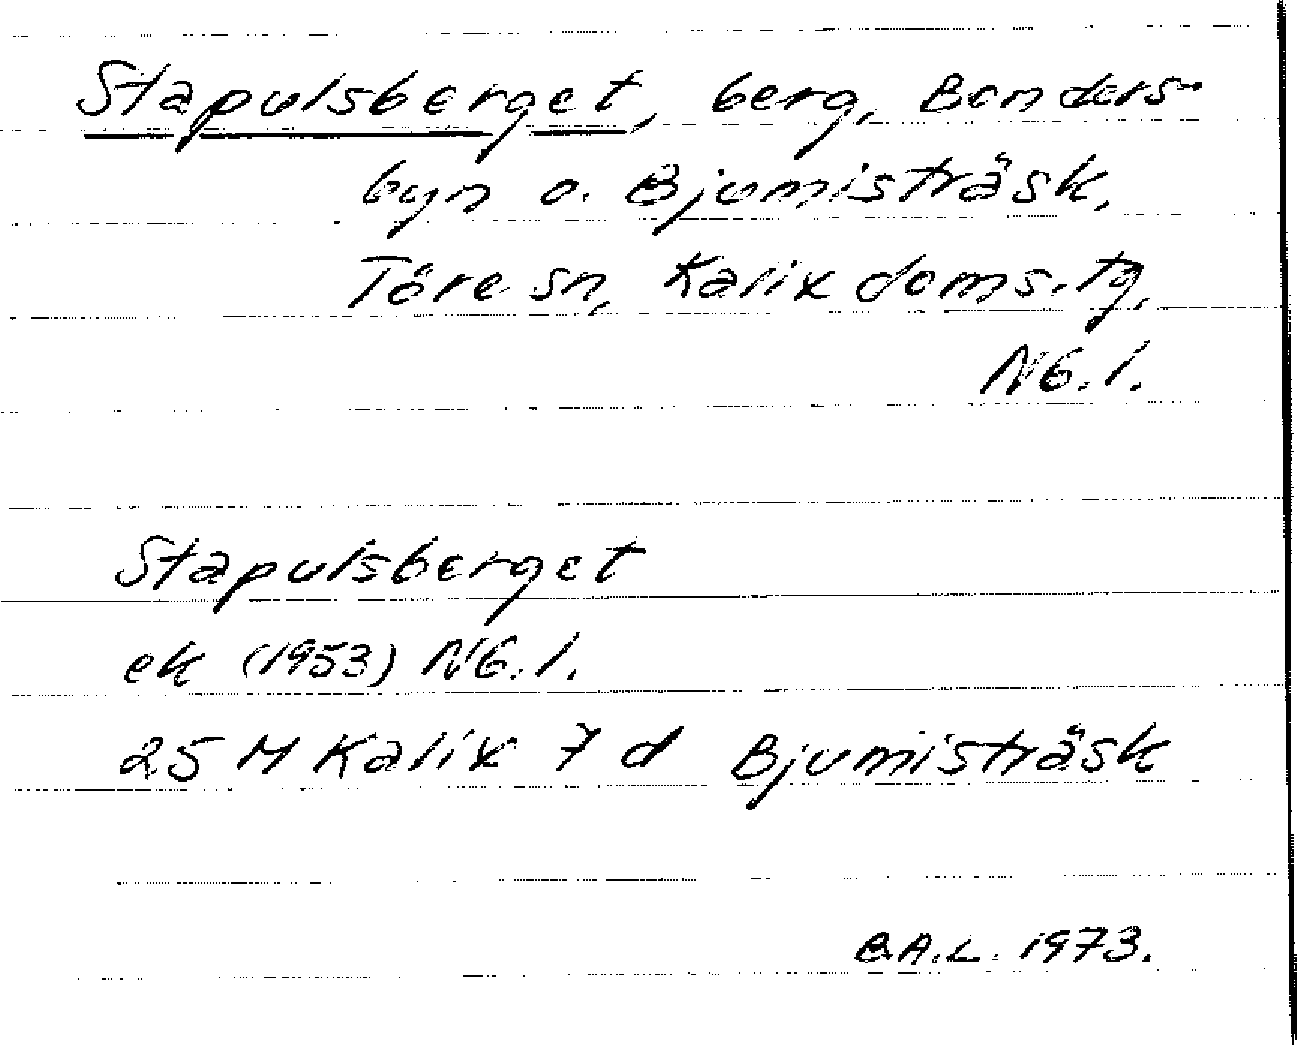 Stapulsberget, berg, Bonders-
byn o. Bjumisträsk,
Töre sn, Kalix doms.tg,
N6.1.
Stapulsberget
ek (1953) N6.1.
25 M Kalix 7 d Bjumisträsk
B.A.L. 1973.